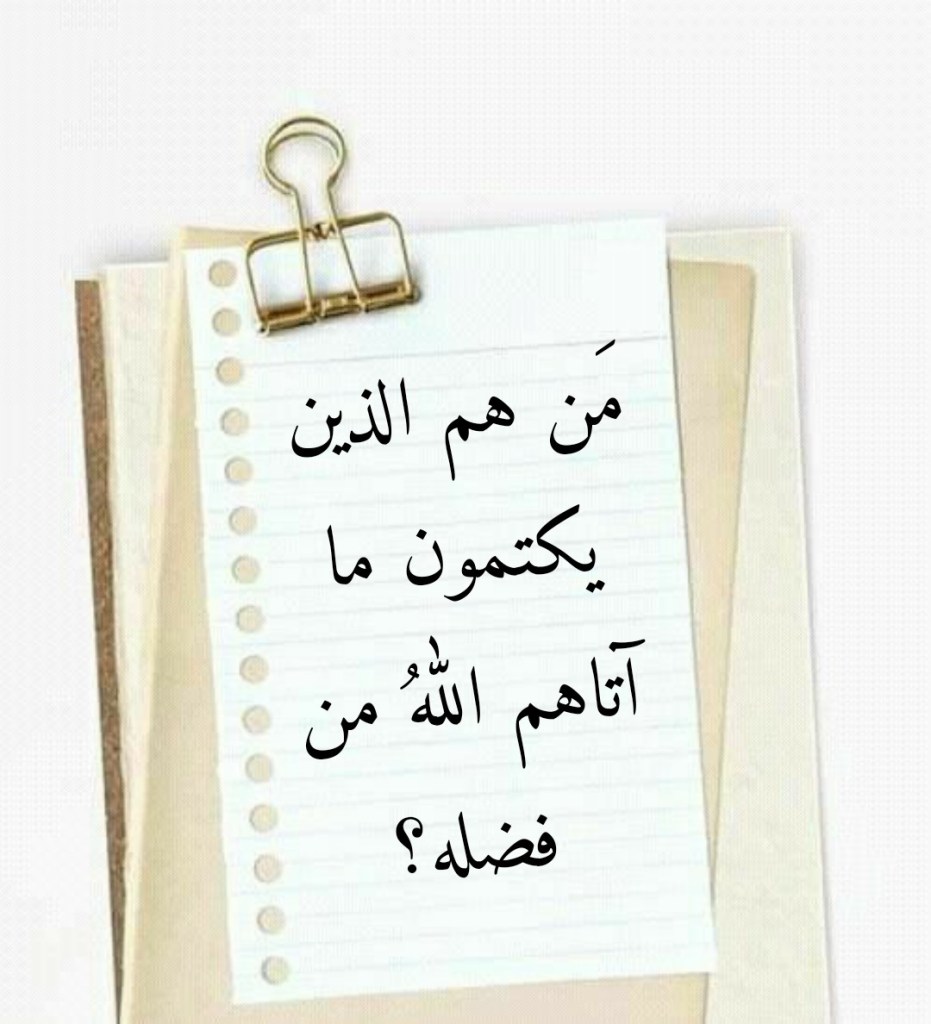 مَن هم الذين
يكتمون ما
آتاهم اللهُ من
فضله؟